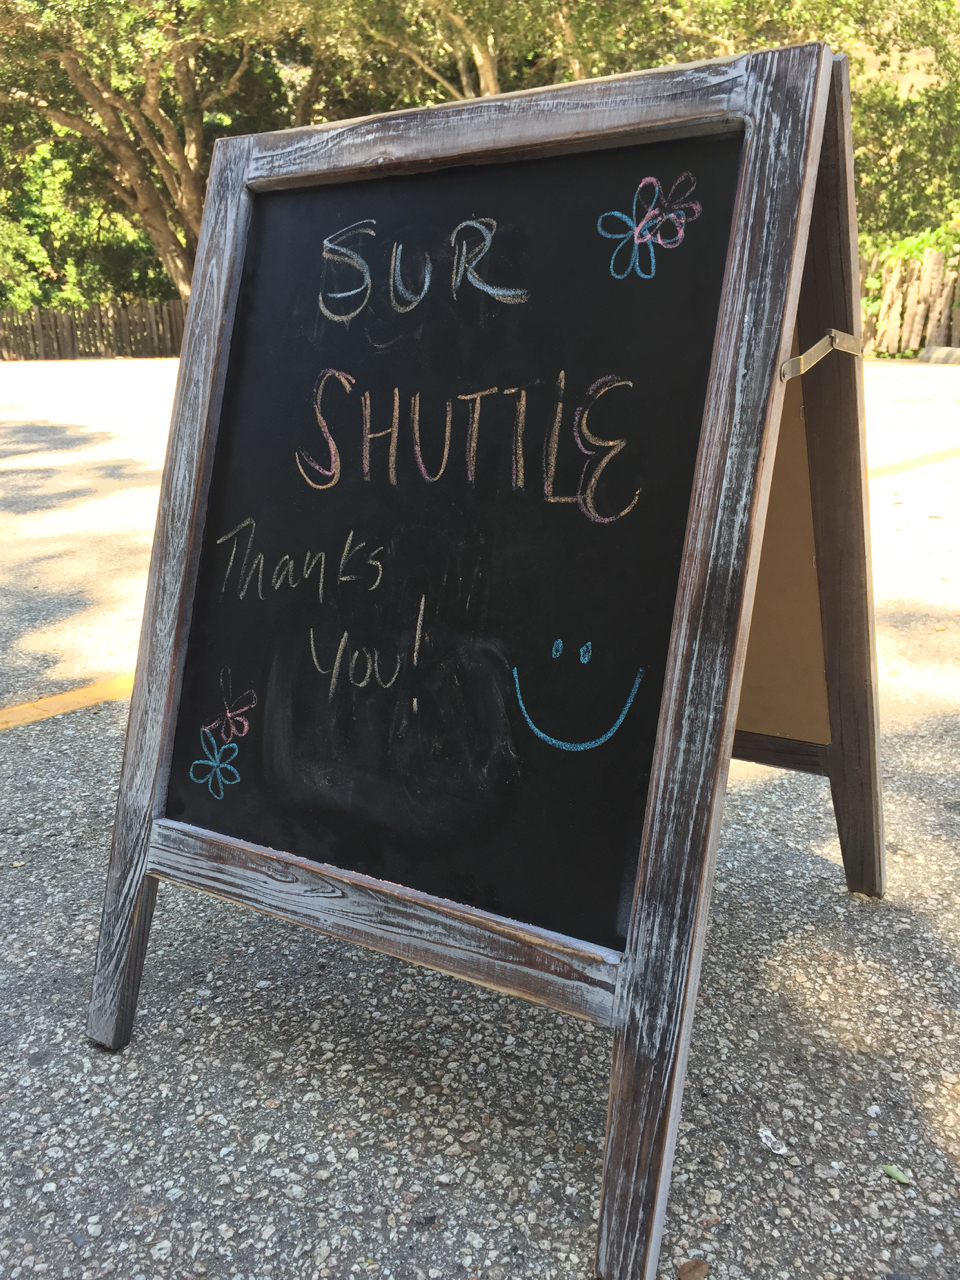 SUR
SHUTTLE
Thanks
you!